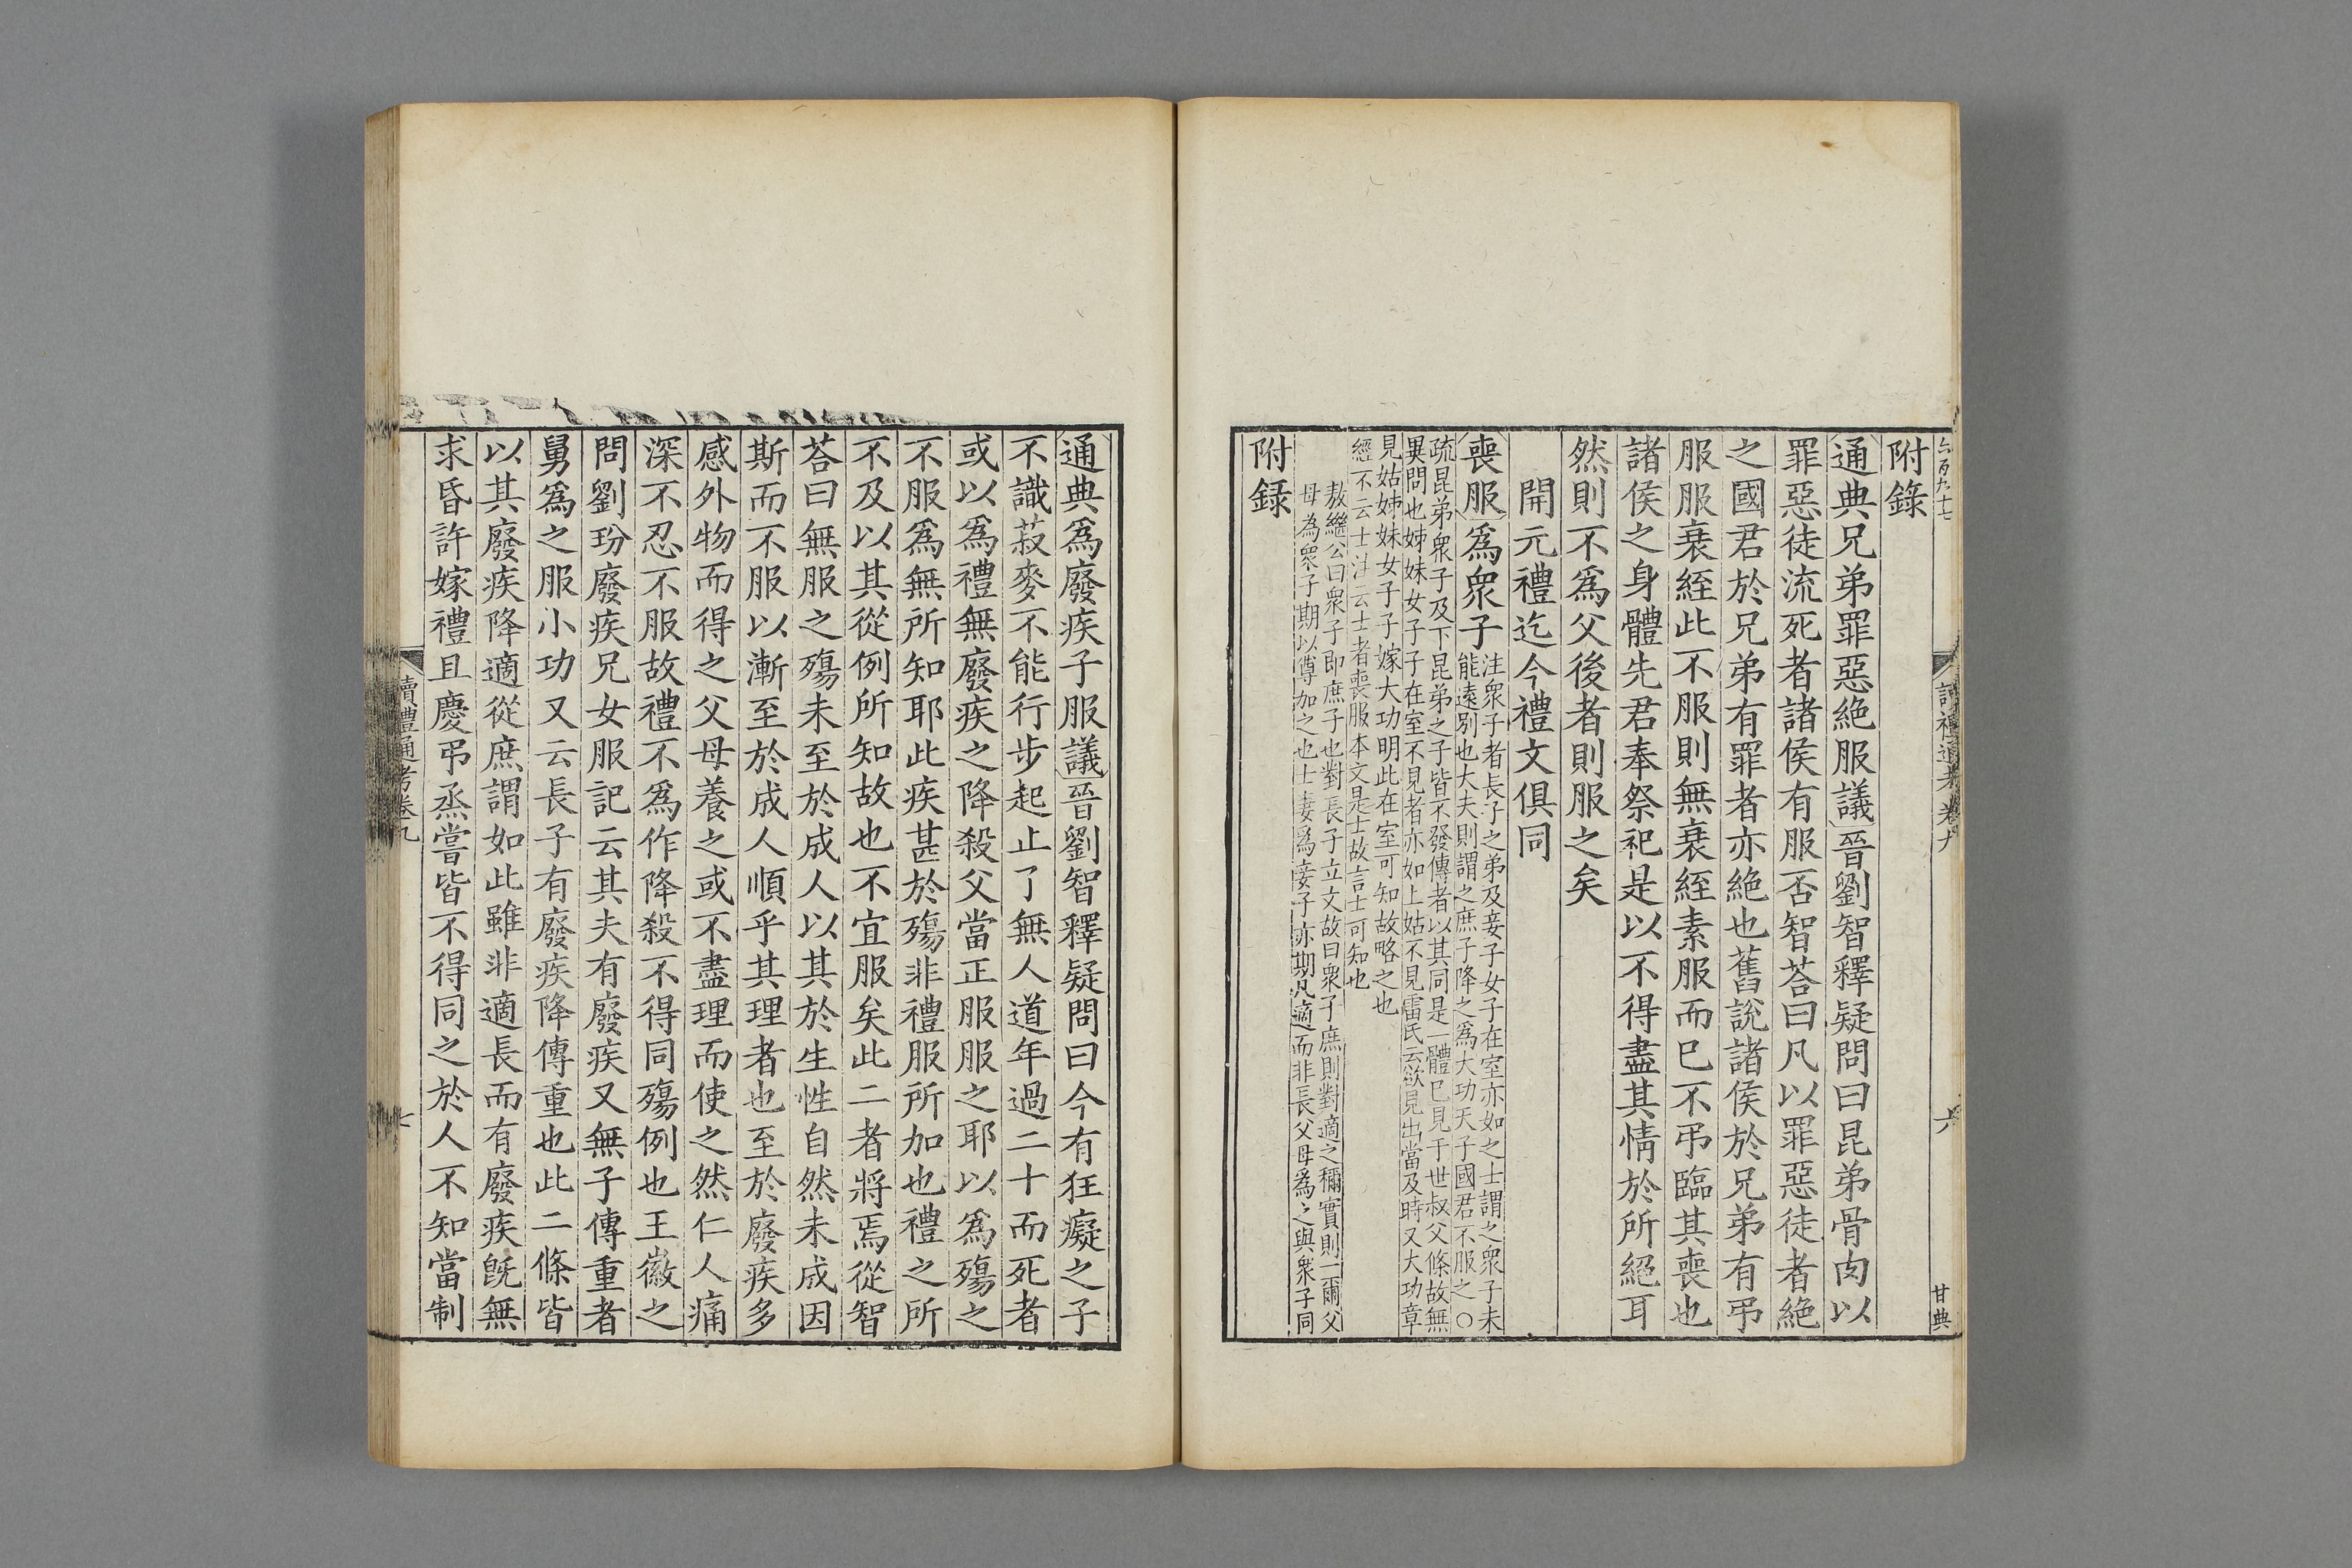 附錄
通典兄弟罪惡絶服議晉劉智釋疑問曰昆弟骨肉以
罪惡徒流死者諸侯有服否智荅曰凡以罪惡徒者絶
之國君於兄弟有罪者亦絶也舊說諸侯於兄弟有弔
服服衰絰此不服則無衰絰素服而已不弔臨其喪也
諸侯之身體先君奉祭祀是以不得盡其情於所絕耳
然則不爲父後者則服之矣
開元禮迄今禮文俱同
喪服爲衆子
注衆子者長子之弟及妾子女子在室亦如之士謂之衆子未
能遠別也大夫則謂之庶子降之爲大功天子國君不服之○
疏昆弟衆子及下昆弟之子皆不發傳者以其同是一體已見于世叔父條故無
異問也姊妹女子子在室不見者亦如上姑不見雷氏云欲見出當及時又大功章
見姑姊妹女子子嫁大功明此在室可知故略之也
經不云士注云士者喪服本文是士故言士可知也
敖繼公曰衆子即庶子也對長子立文故曰衆子庶則對適之稱實則一爾父
母為衆子期以尊加之也士妻爲妾子亦期凡適而非長父母爲之與衆子同
附録
通典爲廢疾子服議晉劉智釋疑問曰今有狂癡之子
不識菽麥不能行步起止了無人道年過二十而死者
或以爲禮無廢疾之降殺父當正服服之耶以爲殤之
不服爲無所知耶此疾甚於殤非禮服所加也禮之所
不及以其從例所知故也不宜服矣此二者將焉從智
荅曰無服之殤未至於成人以其於生性自然未成因
斯而不服以漸至於成人順乎其理者也至於廢疾多
感外物而得之父母養之或不盡理而使之然仁人痛
深不忍不服故禮不爲作降殺不得同殤例也王徽之
問劉玢廢疾兄女服記云其夫有廢疾又無子傳重者
舅爲之服小功又云長子有廢疾降傳重也此二條皆
以其廢疾降適從庶謂如此雖非適長而有廢疾旣無
求昏許嫁禮且慶弔烝嘗皆不得同之於人不知當制
讀禮通考卷九